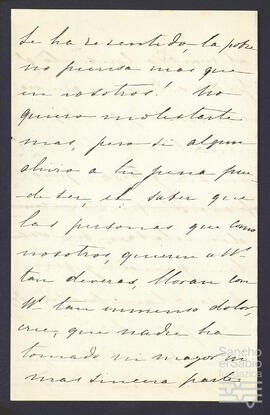 se ha resentido, la pobre
no piensa mas que
en vosotros! No
quiero molestarte
mas, pero si algun
alivio a tu pena pue-
de ser, el saber que
las personas que como
nosotros, quieren a Vs
tan deveras, lloran con
Vs tan inmenso dolor,
cree, que nadie ha
tomado ni mayor ni
mas sincera parte
Sancho
el Sabio